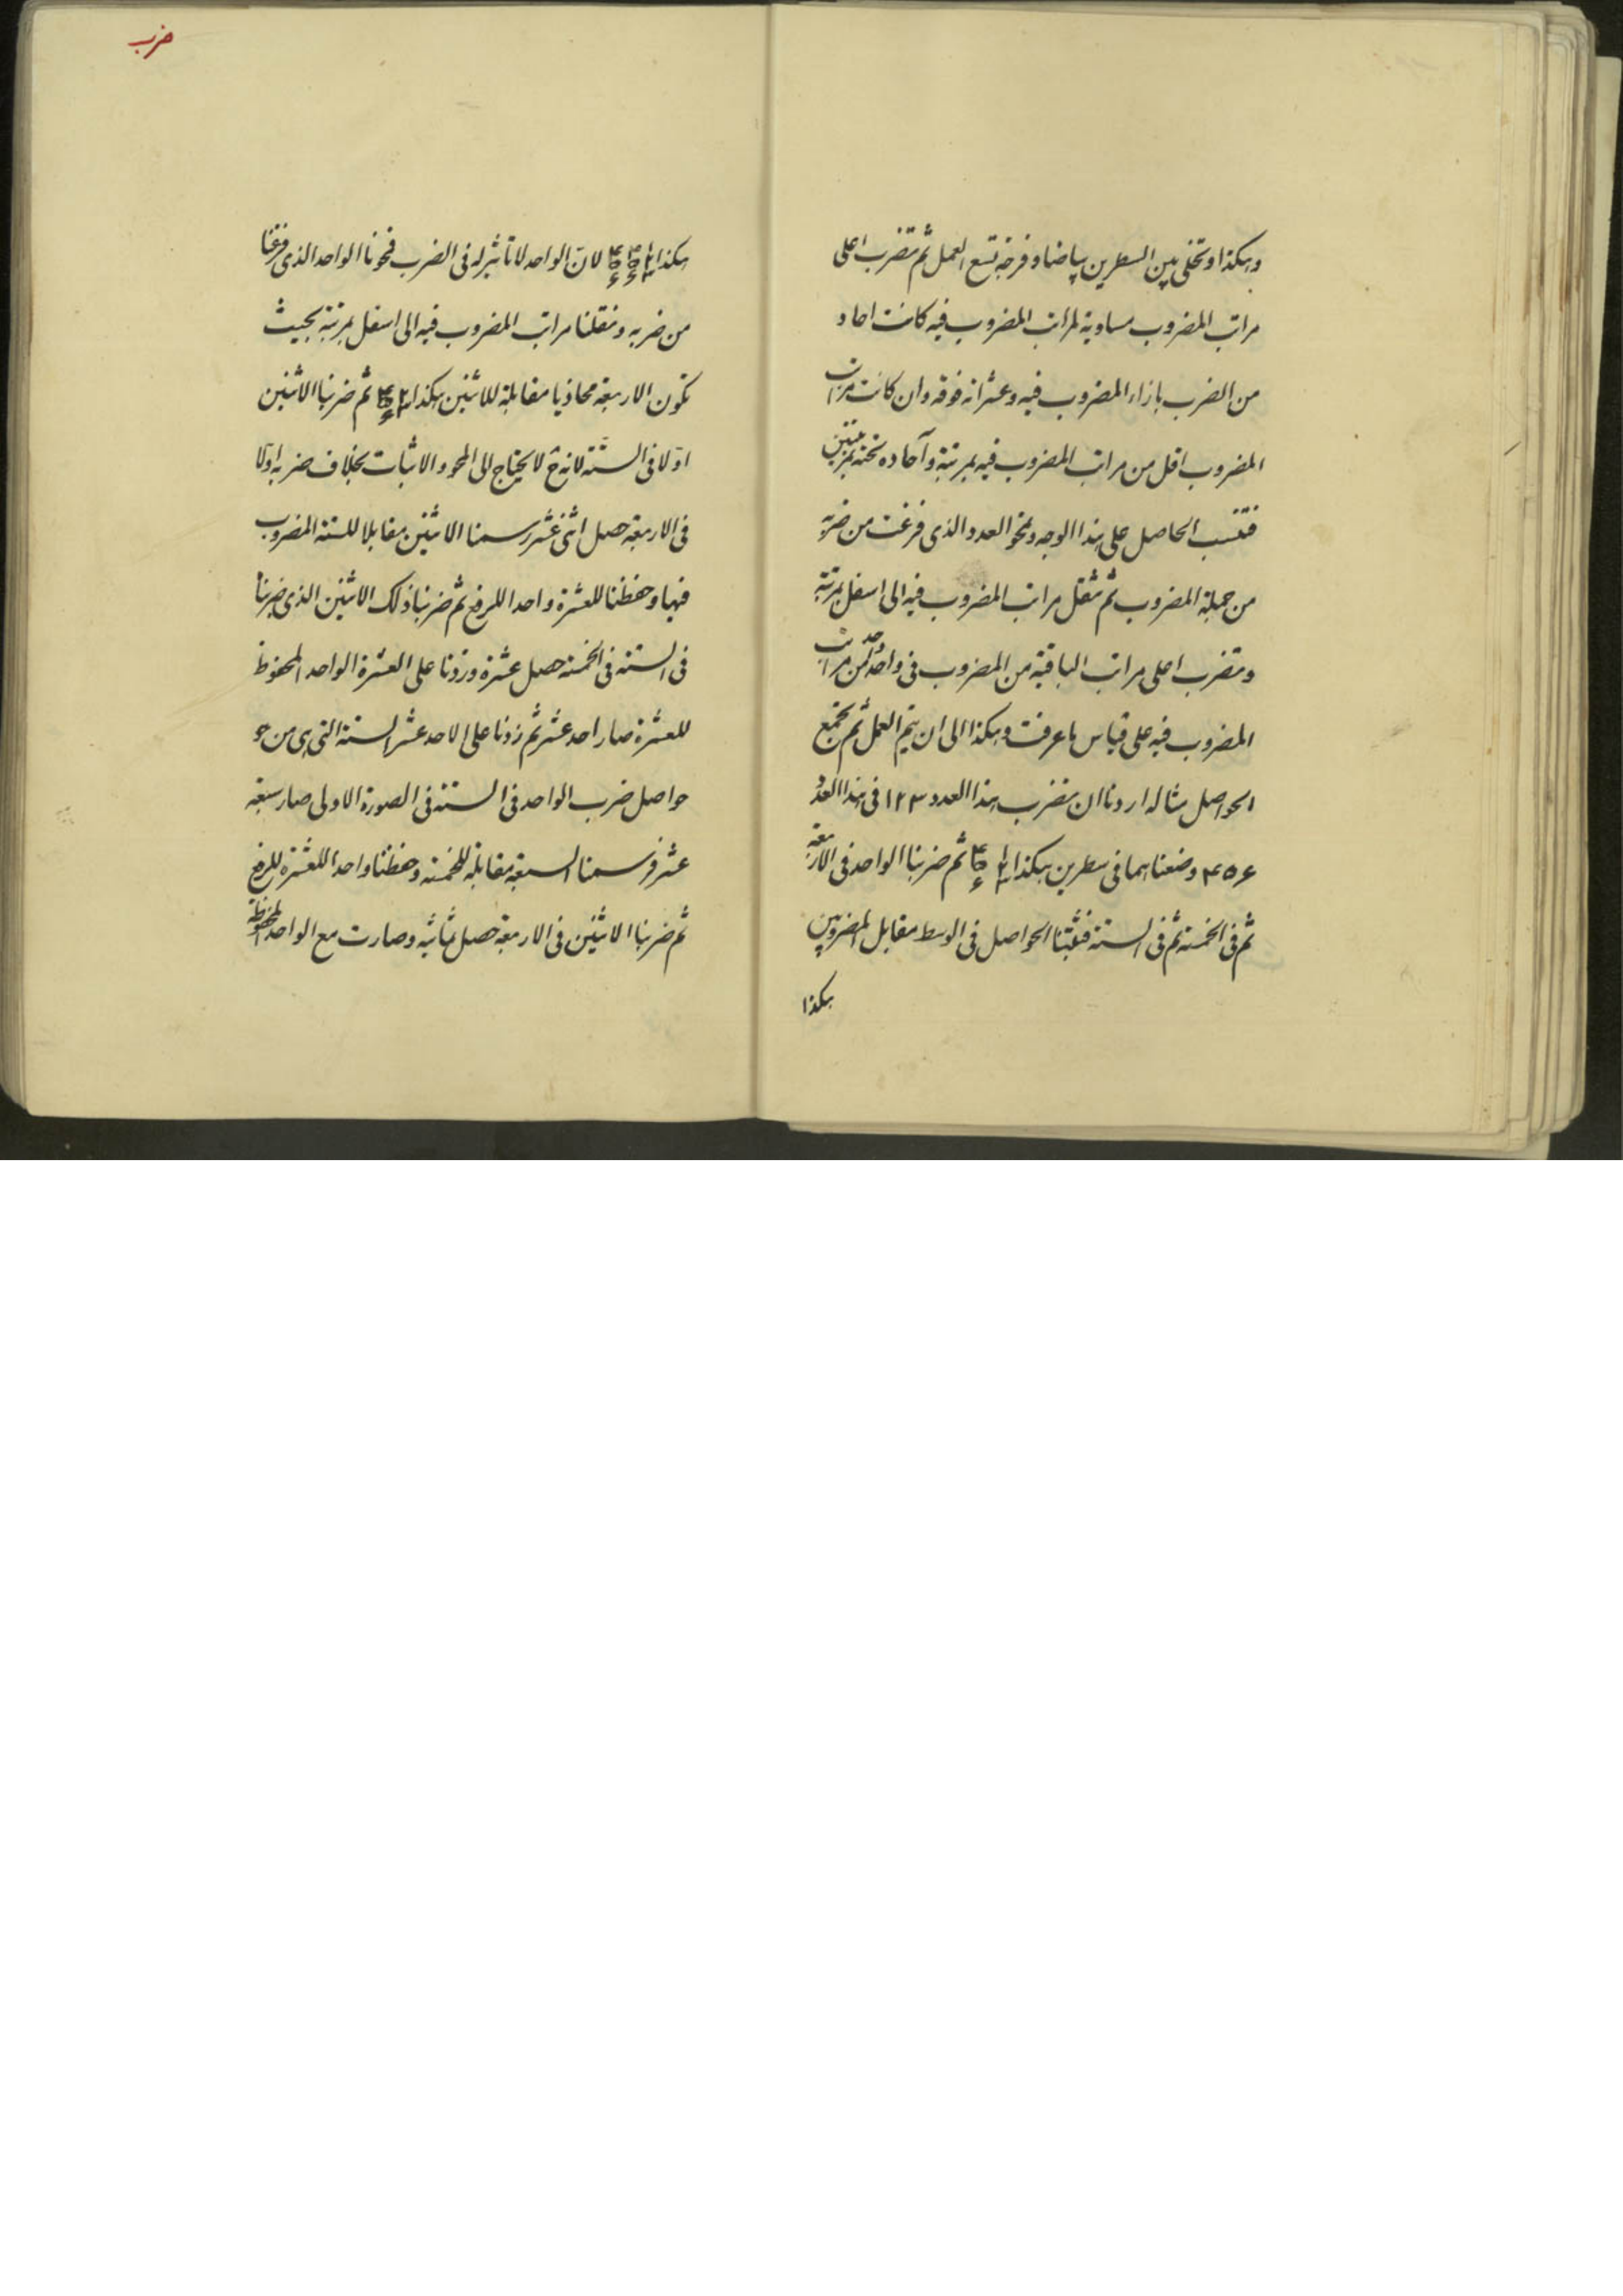 وهكذا وتخلى بين السطرين بياضا وفرجة تسع العمل ثم تضرب اعلى
مراتب المضروب مساوية لمراتب المضروب فيه كانت احاد
من الضرب بازاء المضروب فيه وعشراته فوقه وان كانت مراتب
المضروب اقل من مراتب المضروب فيه بمرتبة وآحاده تحته بمرتبتين
الحاصل على هذا الوجه وتمحو العدد الذى فرغت من ضربه
من جملة المضروب ثم تنقل مراتب المضروب فيه الى اسفل بمرتبة
وتضرب اعلى مراتب الباقية من المضروب فى واحد واحد من مراتب
المضروب فيه على قياس ما عرفت وهكذا الى ان يتم العمل ثم تجمع
الحواصل مثاله اردنا ان نضرب هذا العدد ۱۲۳ فى هذا العدد
۴۵۶ وضعناهما فى سطرين هكذا ثم ضربنا الواحد فى الاربعة
ثم فى الخمسة ثم فى الستة فثبتنا الحواصل فى الوسط مقابل المضروبين
هكذا
ضرب
هكذا لان الواحد لا تأثير له فى الضرب فمحونا الواحد الذى فرغنا
من ضربه ونقلنا مراتب المضروب فيه الى اسفل بمرتبة بحيث
تكون الاربعة محاذيا مقابلة للاثنين هكذا ثم ضربنا الاثنين
اوّلا فى الستّة لانه ح لا يحتاج الى المحو والاثبات بخلاف ضربه اولا
فى الاربعة حصل اثنى عشر رسمنا الاثنين مقابلا للستة المضروب
فيها وحفظنا للعشرة واحدا للرفع ثم ضربنا ذلك الاثنين الذى ضربنا
فى الستة فى الخمسة حصل عشرة وزدنا على العشرة الواحد المحفوظ
للعشرة صار احد عشر ثم زدنا على الاحد عشر الستة التى هى من
حواصل ضرب الواحد فى الستة فى الصورة الاولى صار سبعة
عشر فرسمنا السبعة مقابلة للخمسة وحفظنا واحدا للعشرة للرفع
ثم ضربنا الاثنين فى الاربعة حصل ثمانية وصارت مع الواحد المحفوظة